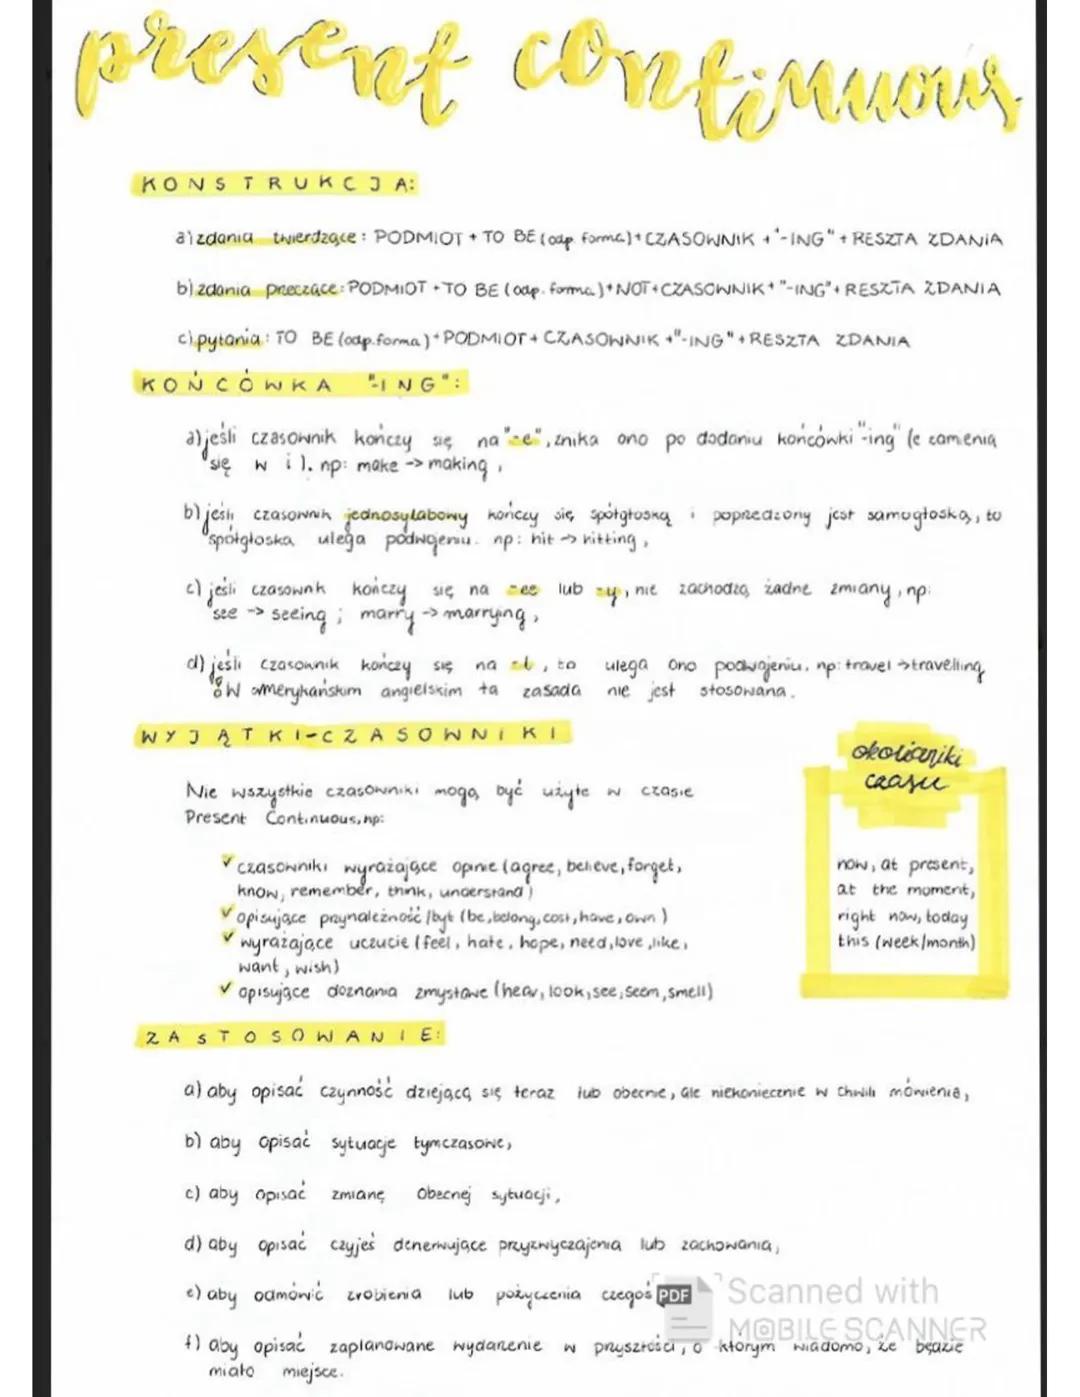 present continuous
KONSTRUKCJA:
a) zdania twierdzące: PODMIOT + TO BE (odp. forma) + CZASOWNIK + "-ING" + RESZTA ZDANIA
b) zdania przeczące: PODMIOT + TO BE (odp. forma) + NOT + CZASOWNIK + "-ING" + RESZTA ZDANIA
c) pytania: TO BE (odp. forma) + PODMIOT + CZASOWNIK + "-ING" + RESZTA ZDANIA
KOŃCÓWKA "-ING":
a) jeśli czasownik kończy się na "-e", znika ono po dodaniu końcówki "-ing" (e zamienia
się w i). np: make -> making,
b) jeśli czasownik jednosylabowy kończy się spółgłoską i poprzedzony jest samogłoską, to
spółgłoska ulega podwojeniu. np: hit -> hitting,
c) jeśli czasownik kończy się na -ee lub -y, nie zachodzą żadne zmiany, np:
see -> seeing; marry -> marrying,
d) jeśli czasownik kończy się na -l, to ulega ono podwojeniu. np: travel -> travelling
W amerykańskim angielskim ta zasada nie jest stosowana.
WYJĄTKI-CZASOWNIKI
Nie wszystkie czasowniki mogą być użyte w czasie
Present Continuous, np:
✓ czasowniki wyrażające opinie (agree, believe, forget,
know, remember, think, understand)
✓ opisujące przynależność/byt (be, belong, cost, have, own)
✓ wyrażające uczucie (feel, hate, hope, need, love, like,
want, wish)
✓ opisujące doznania zmysłowe (hear, look, see, seem, smell)
określniki
czasu
now, at present,
at the moment,
right now, today
this (week/month)
ZASTOSOWANIE:
a) aby opisać czynność dziejącą się teraz lub obecnie, ale niekoniecznie w chwili mówienia,
b) aby opisać sytuacje tymczasowe,
c) aby opisać zmianę obecnej sytuacji,
d) aby opisać czyjeś denerwujące przyzwyczajenia lub zachowania,
e) aby odmówić zrobienia lub pożyczenia czegoś
f) aby opisać zaplanowane wydarzenie w przyszłości, o którym wiadomo, że będzie
miało miejsce.
PDF Scanned with
MOBILE SCANNER